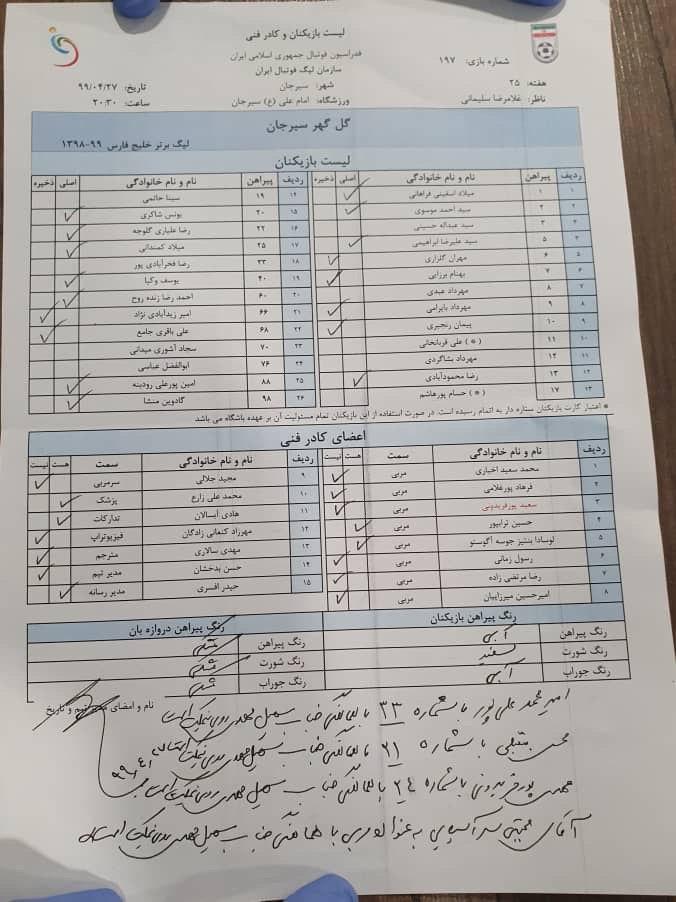 لیست بازیکنان و کادر فنی
فدراسیون فوتبال جمهوری اسلامی ایران
سازمان لیگ فوتبال ایران
شماره بازی: ۱۹۷
هفته: ۲۵
شهر: سیرجان
تاریخ: ۹۹/۰۴/۲۷
ناظر: غلامرضا سلیمانی
ورزشگاه: امام علی (ع) سیرجان
ساعت: ۲۰:۳۰
گل گهر سیرجان
لیگ برتر خلیج فارس ۹۹-۱۳۹۸
لیست بازیکنان
ردیف پیراهن نام و نام خانوادگی اصلی ذخیره
۱ ۱ میلاد اسفینی فراهانی
۲ ۲ سید احمد موسوی
۳ ۳ سید عبداله حسینی
۴ ۵ سید علیرضا ابراهیمی
۵ ۶ مهران گلزاری
۶ ۷ بهنام برزایی
۷ ۸ مهرداد عبدی
۸ ۹ مهرداد بایرامی
۹ ۱۰ پیمان رنجبری
۱۰ ۱۱ (*) علی قربانخانی
۱۱ ۱۲ مهرداد بشاگردی
۱۲ ۱۳ رضا محمودآبادی
۱۳ ۱۷ (*) حسام پورهاشم
ردیف پیراهن نام و نام خانوادگی اصلی ذخیره
۱۴ ۱۹ سینا حاتمی
۱۵ ۲۰ یونس شاکری
۱۶ ۲۲ رضا علیاری گلوجه
۱۷ ۲۵ میلاد کمندانی
۱۸ ۳۳ رضا فخرآبادی پور
۱۹ ۴۰ یوسف وکیا
۲۰ ۶۰ احمد رضا زنده روح
۲۱ ۶۶ امیر زیدآبادی نژاد
۲۲ ۶۸ علی باقری جامع
۲۳ ۷۰ سجاد آشوری میدانی
۲۴ ۷۶ ابوالفضل عباسی
۲۵ ۸۸ امین پورعلی رودبنه
۲۶ ۹۸ گادوین منشا
* اعتبار کارت بازیکنان ستاره دار به اتمام رسیده است. در صورت استفاده از این بازیکنان تمام مسئولیت آن بر عهده باشگاه می باشد
اعضای کادر فنی
ردیف نام و نام خانوادگی سمت هست نیست
۱ محمد سعید اخباری مربی
۲ فرهاد پورغلامی مربی
۳ سعید پورفریدونی مربی
۴ حسین ترابپور مربی
۵ لوسادا بنشیز جوسه آگوستو مربی
۶ رسول زمانی مربی
۷ رضا مرتضی زاده مربی
۸ امیرحسین میرزاییان مربی
ردیف نام و نام خانوادگی سمت هست نیست
۹ مجید جلالی سرمربی
۱۰ محمد علی زارع پزشک
۱۱ هادی آبسالان تدارکات
۱۲ مهرزاد کنعانی زادگان فیزیوتراپ
۱۳ مهدی سالاری مترجم
۱۴ حسن بدخشان مدیر تیم
۱۵ حیدر افسری مدیر رسانه
رنگ پیراهن بازیکنان
رنگ پیراهن دروازه بان
رنگ پیراهن آبی رنگ پیراهن مشکی
رنگ شورت سفید رنگ شورت مشکی
رنگ جوراب آبی رنگ جوراب مشکی
نام و امضای تیم و تاریخ
امیر محمد علی پور با شماره ۳۳ با هماهنگی جناب سهیل مهدی
با شماره ۲۱ با هماهنگی جناب سهیل مهدی
۹۹,۴,۲۷
مهدی پورفریدونی با شماره ۲۴ با هماهنگی جناب سهیل مهدی
آقای مجتبی به عنوان مربی با هماهنگی جناب سهیل مهدی